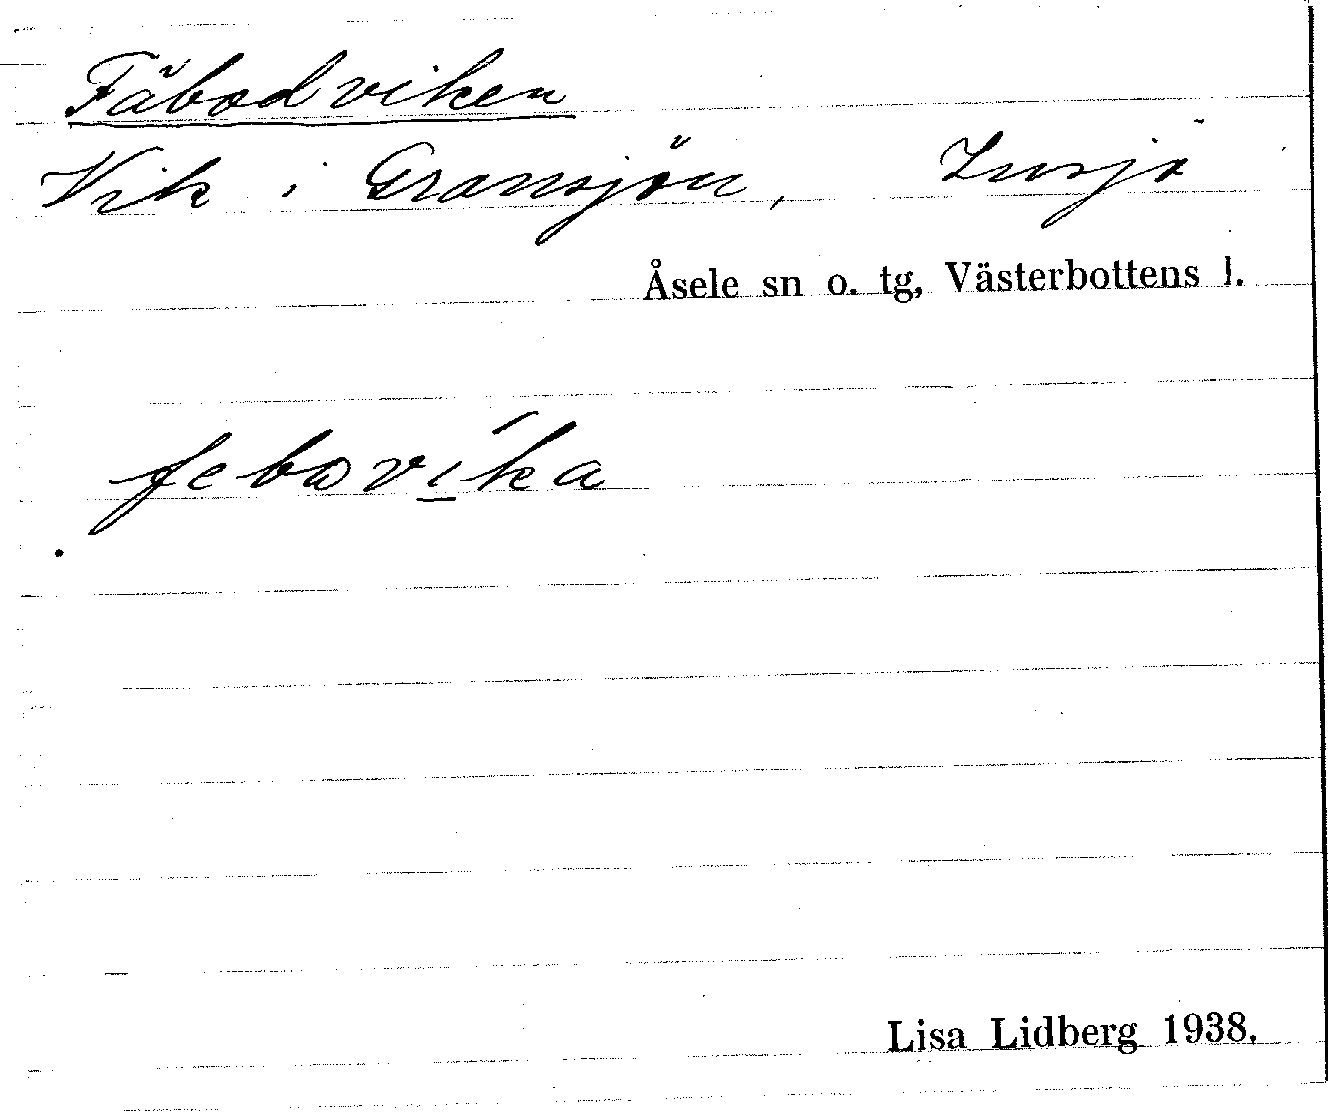 Fäbodviken
Vik i Gransjön, Insjö
Åsele sn o. tg, Västerbottens l.
febωvi̲ka
Lisa Lidberg 1938.